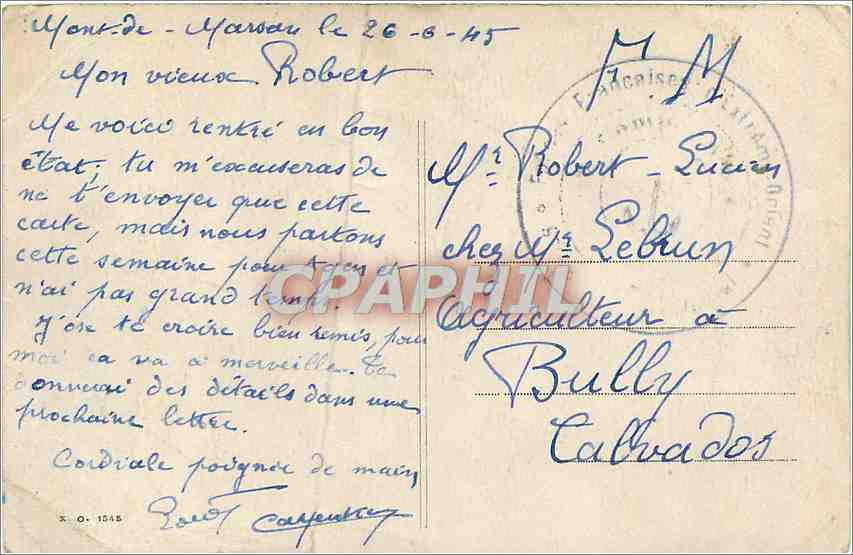 Mont-de-Marsan le 26-6-45
Mon vieux Robert
Me voici rentré en bon
état, tu m'excuseras de
ne t'envoyer que cette
carte, mais nous partons
cette semaine pour Agen et
n'ai pas grand temps.
J'ose te croire bien remis, pour
moi ca va a merveille. Te
donnerai des détails dans une
prochaine lettre.
Cordiale poignée de main
X. O. 1545
F. M.
Françaises d'Extrême Orient
Mr Robert Lucien
chez Mr Lebrun
Agriculteur à
Bully
Calvados
CPAPHIL